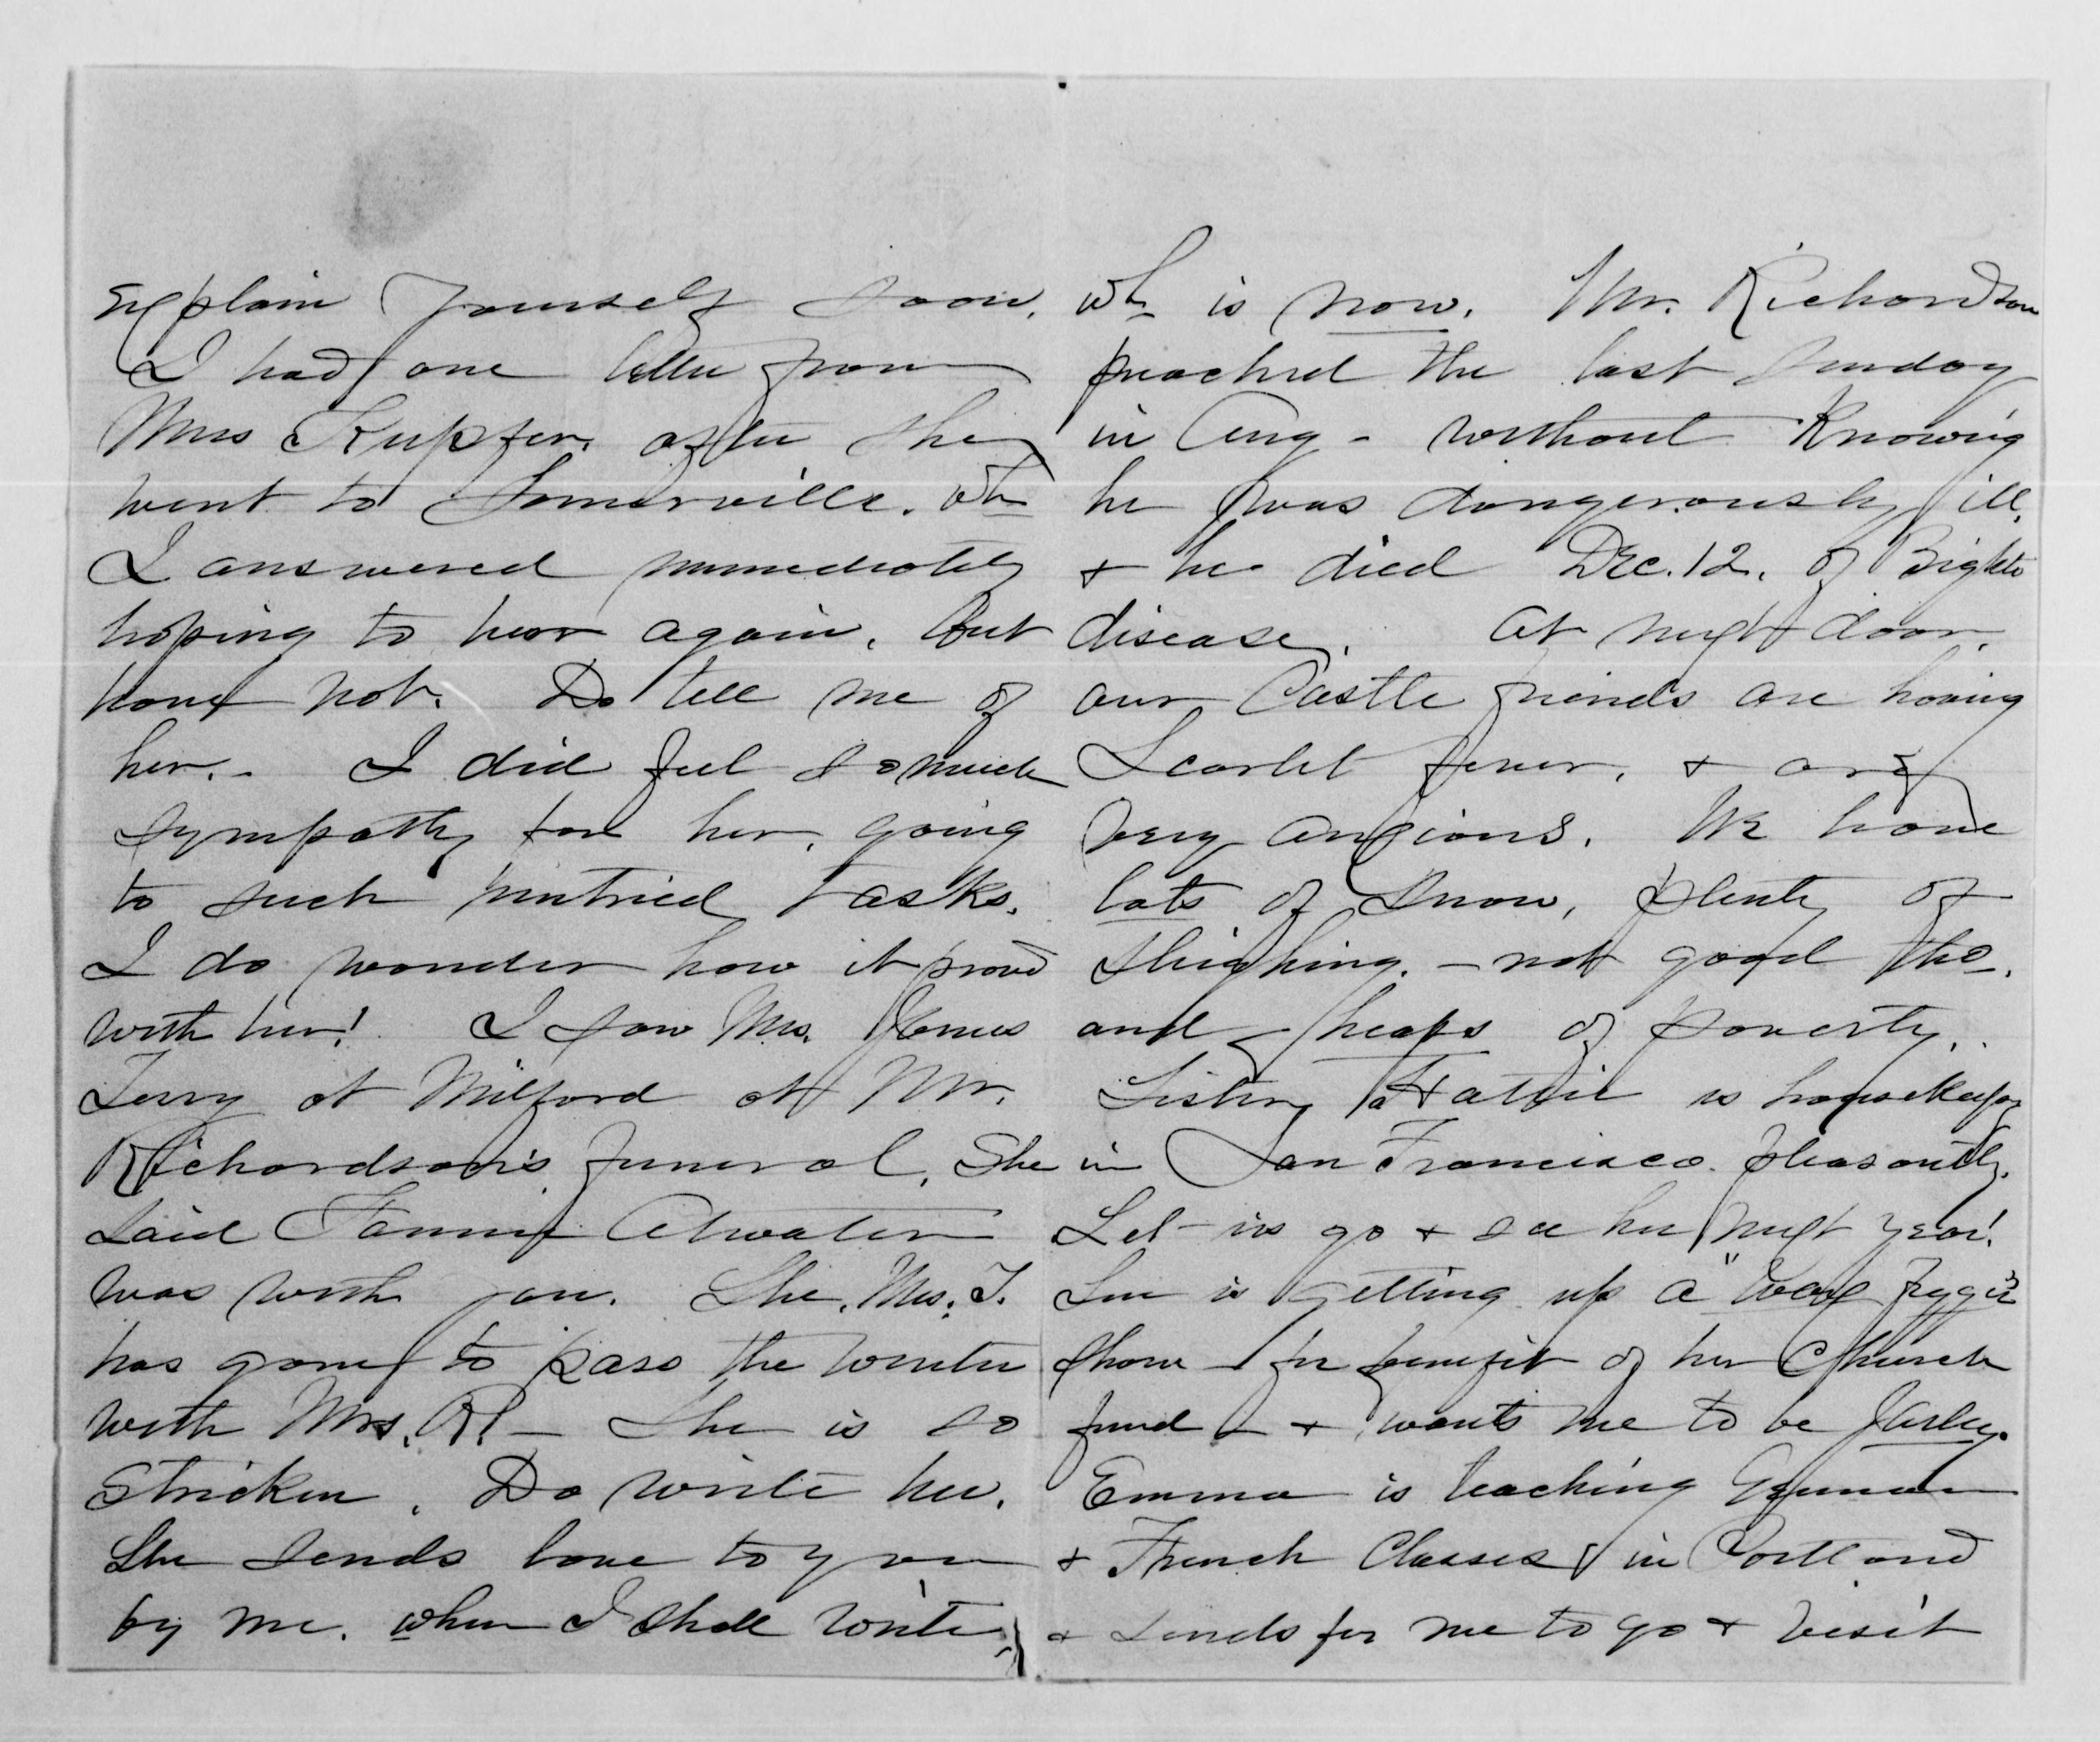 Explain yourself soon.
I had one letter from
Mrs Kupfer, after she
went to Somerville. wh
I answered immediately
hoping to hear again, but
have not. Do tell me of
her. - I did feel so much
sympathy for her, going
to such untried tasks.
I do wonder how it prov'd
with her! I saw Mrs.
Terry at Milford at Mr.
Richardson's funeral. She
said Fannie Atwater
was with you. She, Mrs. T.
has gone to pass the winter
with Mrs. R. - She is so
stricken. Do write her.
She sends love to you
by me. when I shall write,
wh is now. Mr. Richardson
preached the last Sunday
in Aug - without knowing
he was dangerously ill,
& he died Dec. 12. of Brights
disease. At next door,
our Castle friends are having
Scarlet fever, & are
very anxious. We have
lots of snow, plenty of
sleighing. - not good tho.
and heaps of poverty.
Sister Hattie is housekeeping
in San Francisco. pleasantly.
Let us go & see her next year!
Sue is getting up a "wax figger"
show - for benefit of her Church
fund - & wants me to be Jarley.
Emma is teaching German
& French Classes in Portland
& sends for me to go & visit